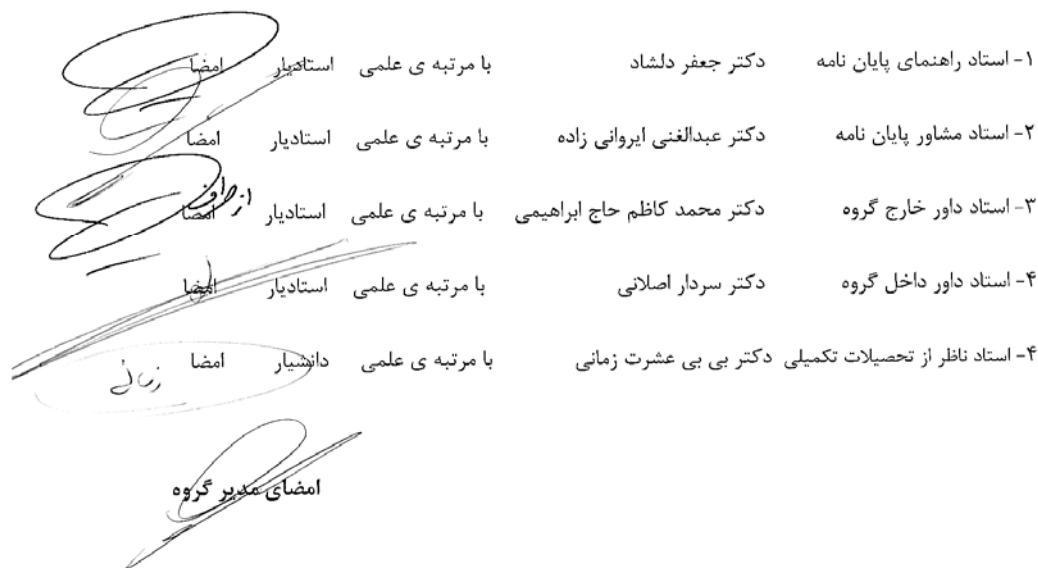 ۱- استاد راهنمای پایان نامه دکتر جعفر دلشاد با مرتبه ی علمی استادیار امضا
۲- استاد مشاور پایان نامه دکتر عبدالغنی ایروانی زاده با مرتبه ی علمی استادیار امضا
۳- استاد داور خارج گروه دکتر محمد کاظم حاج ابراهیمی با مرتبه ی علمی استادیار امضا
از طرف
۴- استاد داور داخل گروه دکتر سردار اصلانی با مرتبه ی علمی استادیار امضا
۴- استاد ناظر از تحصیلات تکمیلی دکتر بی بی عشرت زمانی با مرتبه ی علمی دانشیار امضا
امضای مدیر گروه